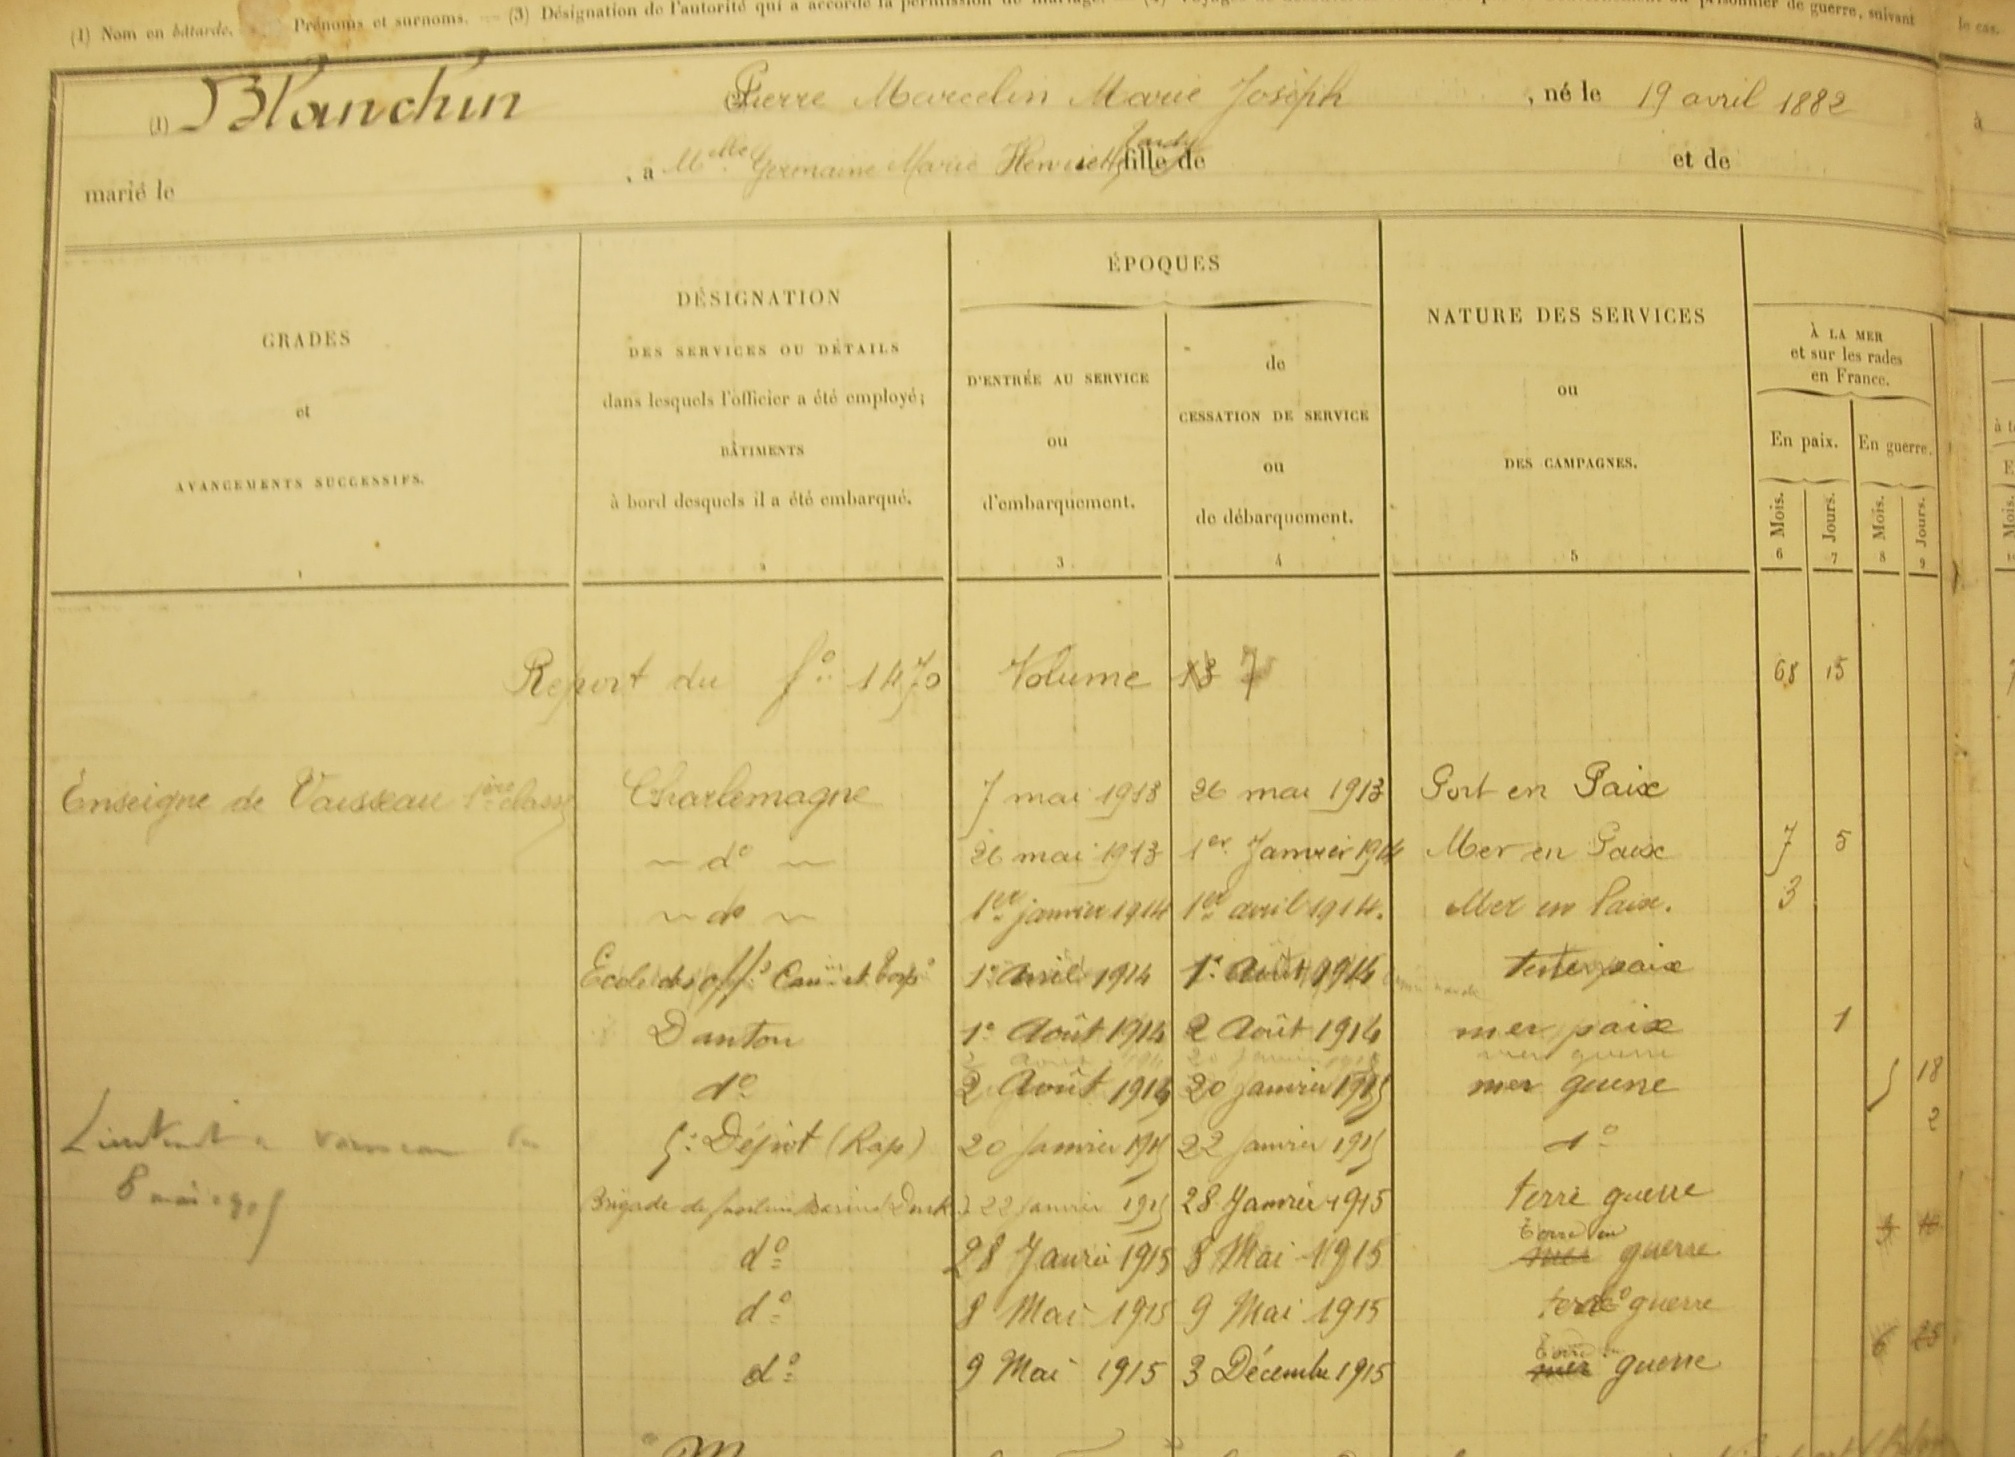 (1) Nom en bâtarde. Prénoms et surnoms. — (3) Désignation de l'autorité qui a accordé la permission de mariage. prisonnier de guerre, suivant le cas.
(1) Blanchin Pierre Marcelin Marie Joseph , né le 19 avril 1882 à
marié le , à Melle Germaine Marie Henriette fille de et de
GRADES
et
AVANCEMENTS SUCCESSIFS.
1
DÉSIGNATION
DES SERVICES OU DÉTAILS
dans lesquels l'officier a été employé;
BÂTIMENTS
à bord desquels il a été embarqué.
2
ÉPOQUES
D'ENTRÉE AU SERVICE
ou
d'embarquement.
3
de
CESSATION DE SERVICE
ou
de débarquement.
4
NATURE DES SERVICES
ou
DES CAMPAGNES.
5
À LA MER
et sur les rades
en France.
En paix. En guerre.
Mois. Jours. Mois. Jours.
6 7 8 9
Report du fo 1470 Volume 13 7 68 15
Enseigne de Vaisseau 1ère classe Charlemagne 7 mai 1913 26 mai 1913 Port en Paix
do 26 mai 1913 1er Janvier 1914 Mer en Paix 7 5
do 1er janvier 1914 1er avril 1914. Mer en Paix. 3
Ecole des offs Can et Torp 1er Avril 1914 1er Août 1914 terre paix
Danton 1er Août 1914 2 Août 1914 mer paix 1
do 2 Août 1914 20 janvier 1915 mer guerre 5 18
Lieutenant de vaisseau du 5e Dépôt (Rap) 20 Janvier 1915 22 janvier 1915 do 2
8 mai 1915 Brigade de fusiliers Marins (Dunk) 22 janvier 1915 28 Janvier 1915 terre guerre
do 28 Janvier 1915 8 Mai 1915 mer Terre en guerre 3 10
do 8 Mai 1915 9 Mai 1915 terre guerre
do 9 Mai 1915 3 Décembre 1915 mer Terre en guerre 6 25